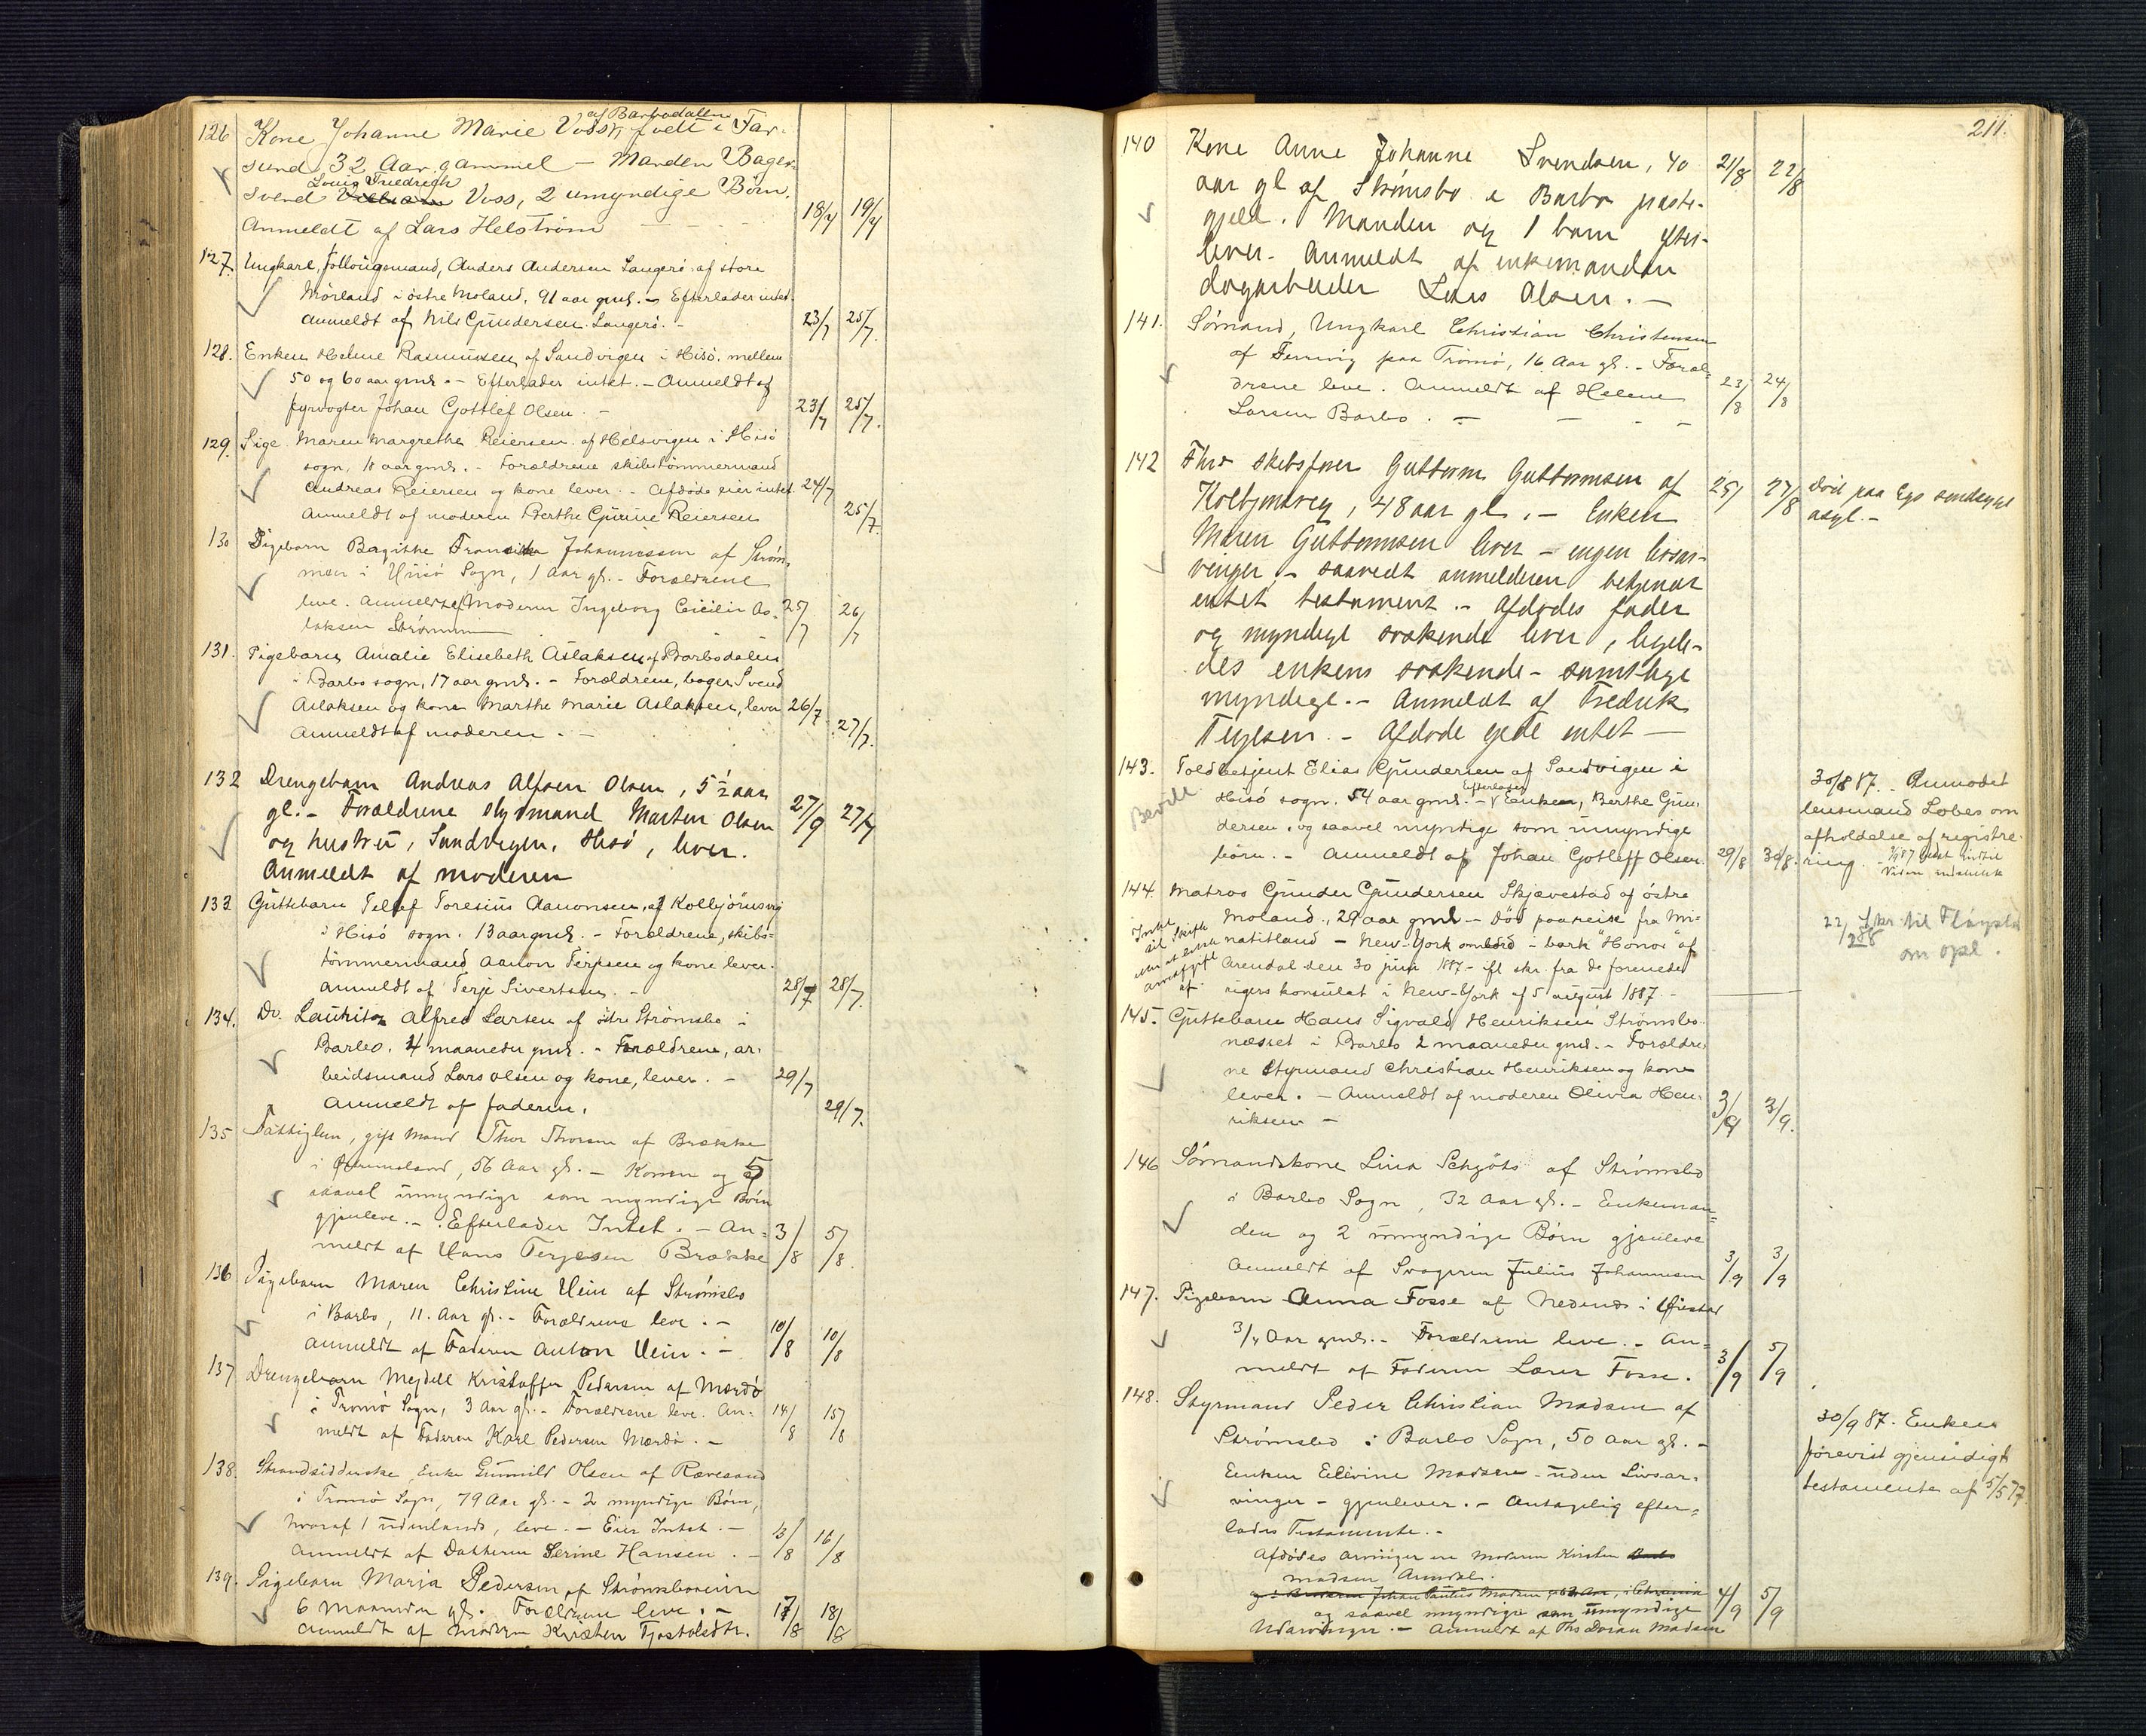 126 Kone Johanne Marie Voss, født i Far-
af Barbodalen
sund 32 Aar gammel – Manden Bager-
Louis Friedrich
svend Voss, 2 umyndige Børn.
Anmeldt af Lars Helstrøm 18/7 19/7
127. Ungkarl, Anders Andersen Langerø af store
Mørland i østre Moland, 91 aar gml. – Efterlader intet.
Anmeldt af Nils Gundersen Langerø. – 23/7 25/7
128. Enken Helene Rasmussen af Sandvigen i Hisø, mellem
50 og 60 aar gml. – Efterlader intet. – Anmeldt af
fyrvogter Johan Gottlef Olsen. – 23/7 25/7
129. Pige Maren Margrethe Reiersen af Helsvigen i Hisø
sogn, 18 aar gml. – Forældrene skibstømmermand
Andreas Reiersen og kone lever. – Afdøde eier intet. 24/7
Anmeldt af moderen Berthe Gurine Reiersen 25/7
130 Pigebarn Johannessen af Strøm-
men i Hisø Sogn, 1 Aar gl. – Forældrene
leve. Anmeldt af Moderen Ingeborg Cicilie As- 25/7 26/7
laksen Strømmen
131. Pigebarn Amalie Elisebeth Aslaksen af Barbodalen
i Barbo sogn, 17 aar gml. – Forældrene, bager Svend
Aslaksen og kone Marthe Marie Aslaksen, lever 26/7
Anmeldt af moderen. – 27/7
132 Drengebarn Andreas Alfsen Olsen, 5½ aar
gl. – Forældrene styrmand Morten Olsen 27/9 27/7
og hustru, Sandvigen, Hisø, lever.
Anmeldt af moderen
133 Guttebarn Tellef Toresius Aanonsen, af Kolbjørnsvig
i Hisø sogn. 13 aar gml. – Forældrene, skibs-
tømmermand Aanon Terjesen og kone lever.
Anmeldt af Terje Sivertsen. – 28/7 28/7
134. Do. Lauritz Alfred Larsen af østre Strømsbo i
Barbo. 4 maaneder gml. – Forældrene, ar-
beidsmand Lars Olsen og kone, lever. – 29/7
Anmeldt af faderen. 29/7
135 Fattiglem, gift Mand Thor Thorsen af Brække
i Østremoland, 56 Aar gl. – Konen og 5
saavel umyndige som myndige Børn
gjenleve. – Efterlader Intet. – An- 3/8 5/8
meldt af Hans Terjesen Brække
136 Pigebarn Maren Christine Hein af Strømsbo
i Barbo, 11 Aar gl. – Forældrene leve. –
Anmeldt af Faderen Anton Hein. – 10/8 10/8
137 Drengebarn Mejdell Kristoffer Pedersen af Mærdø
i Tromø Sogn, 3 Aar gl. – Forældrene leve. An- 14/8 15/8
meldt af Faderen Karl Pedersen Mærdø. –
138. Strandsidderske Enke Gunnild Olsen af Rævesand
i Tromø Sogn, 79 Aar gl. – 2 myndige Børn,
hvoraf 1 udenlands, leve. – Eier Intet. –
Anmeldt af Datteren Serine Hansen. – 15/8 16/8
139. Pigebarn Marja Pedersen af Strømsboveien
6 Maaneder gl. Forældrene leve. – 17/8 18/8
Anmeldt af Moderen Kirsten Tjostolsdtr.
211.
140 Kone Anne Johanne Svendsen, 40 21/8 22/8
aar gl af Strømsbo i Barbo præste-
gjeld. Manden og 1 barn efter-
lever. Anmeldt af enkemanden
dagarbeider Lars Olsen. –
141. Sømand, Ungkarl Christian Christensen
af Tromø, 16 Aar gl. – Foræl-
drene leve. Anmeldt af Helene 23/8 24/8
Larsen Barbo. –
142 Fhv skibsfører Guttorm Guttormsen af 25/ 27/8 død paa Egs sindssyge
Kolbjørnsvig, 48 aar gl. – Enken asyl. –
Maren Guttormsen lever – ingen livsar-
vinger, – saavidt anmelderen bekjendt
intet testament. – Afdødes fader
og myndige søskende lever, ligele-
des enkens søskende – samtlige
myndige. – Anmeldt af Fredrik
Terjesen. – Afdøde eiede intet –
143. Toldbetjent Elias Gundersen af Sandvigen i 30/8 87. Anmodet
Hisø sogn. 54 aar gml. – Efterlader Enken, Berthe Gun- lensmand Lobes om
dersen, og saavel myndige som umyndige afholdelse af registre-
børn. – Anmeldt af Johan Gotleff Olsen. 29/8 30/8. ring.
144. Matros Gunder Gundersen Skjævestad af østre
Moland, 29 aar gml – Død paa reise fra
– New-York ombord i bark "Honor" af
Arendal den 30 juni 1887 – ifl skr. fra de forenede
rigers konsulat i New-York af 5 august 1887. –
22/2 88 Skr. til
om opl.
145. Guttebarn Hans Sigvald Henriksen Strømsbo-
næsset i Barbo 2 maaneder gml. – Forældre-
ne Styrmand Christian Henriksen og kone
lever. – Anmeldt af moderen Olivia Hen- 3/9 3/9.
riksen –
146 Sømandskone Lina Schjøts af Strømsbo
i Barbo Sogn, 32 Aar gl. – Enkeman-
den og 2 umyndige Børn gjenleve
Anmeldt af Svogeren Julius Johannesen 3/9 3/9
147. Pigebarn Anna Fosse af Nedenæs i Øiestad
3/4 Aar gml. – Forældrene leve. – An-
meldt af Faderen Lærer Fosse. 3/9 5/9
148. Styrmand Peder Christian Madsen af
Strømsbo i Barbo Sogn, 50 Aar gl. – 30/9 87. Enken
Enken Elevine Madsen – uden Livsar- forevist gjensidigt
vinger – gjenlever. – Antagelig efter- testamente af 5/5 77.
lades Testamente. –
Afdødes arvinger ere Moderen Kirsten
Madsen Arendal.
og saavel myndige som umyndige 4/9 5/9
Udarvinger. – Anmeldt af Madsen